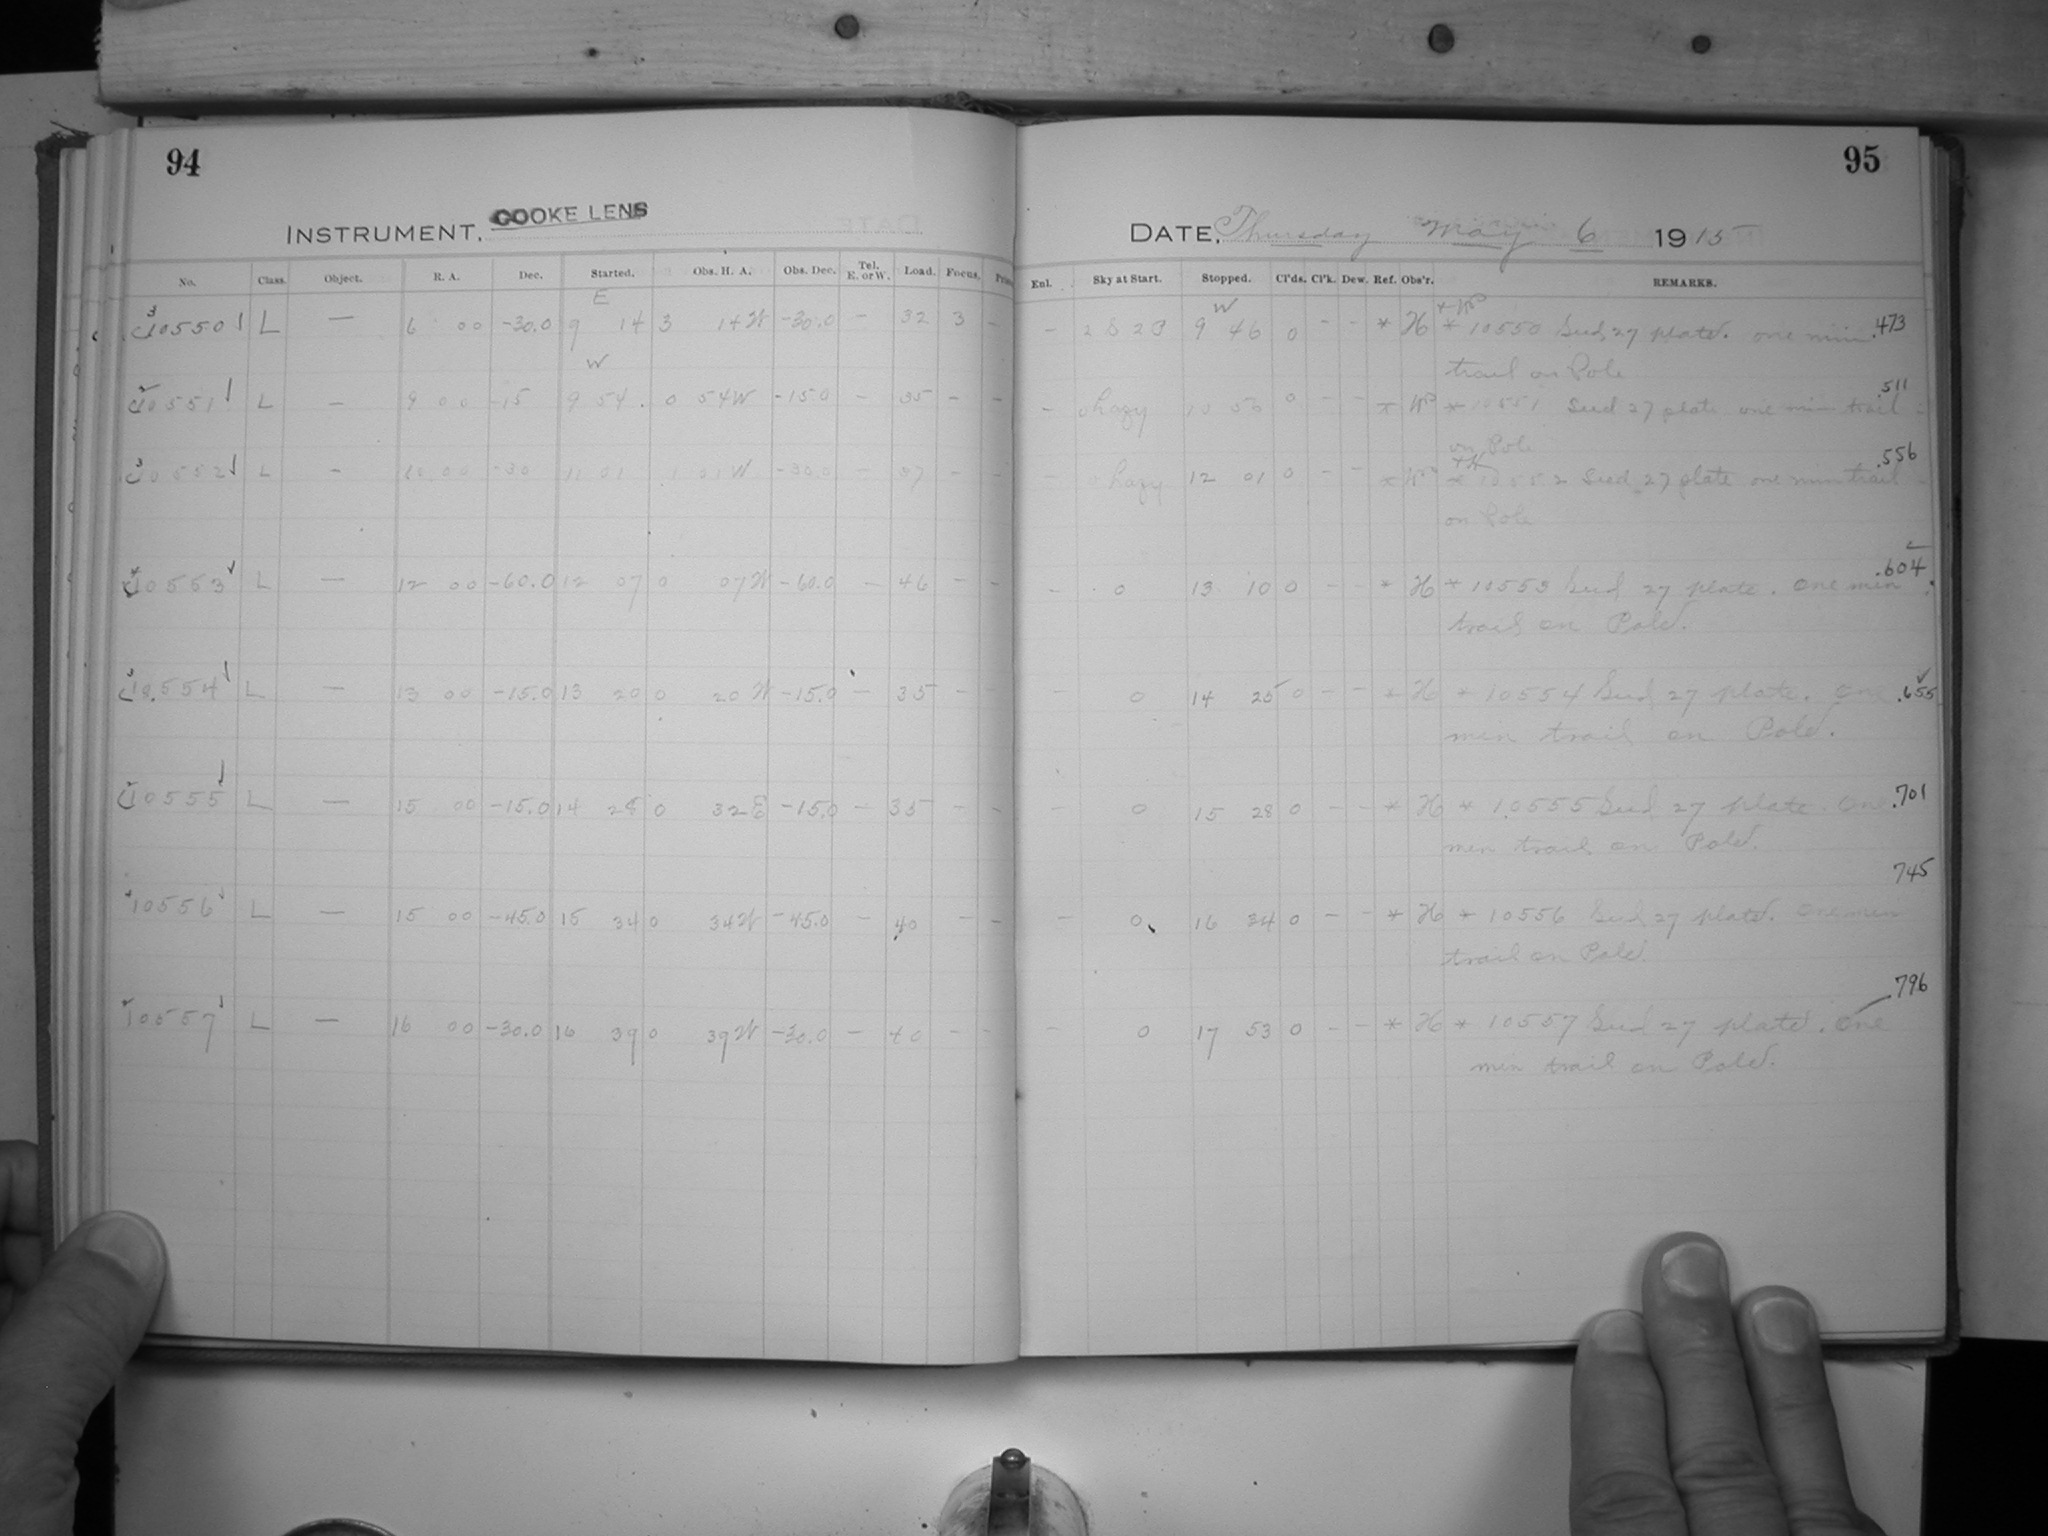 94
INSTRUMENT, COOKE LENS
No. Class. Object. R. A. Dec. Started. Obs. H. A. Obs. Dec. Tel. E. or W. Load. Focus.
E
10550 L — 6 00 -30.0 9 14 3 14 W -30.0 - 32 3 -
W
10551 L — 9 00 -15 9 54 0 54 W -15.0 - 35 - -
10552 L - 10 00 -30 11 01 1 01 W -30.0 - 37 - -
10553 L — 12 00 -60.0 12 07 0 07 W -60.0 - 46 - -
10554 L — 13 00 -15.0 13 20 0 20 W -15.0 - 35 - -
10555 L — 15 00 -15.0 14 28 0 32 E -15.0 - 35 - -
10556 L — 15 00 -45.0 15 34 0 34 W -45.0 - 40 - -
10557 L — 16 00 -30.0 16 39 0 39 W -30.0 - 40 - -
95
DATE, Thursday May 6 1915
Enl. Sky at Start. Stopped. Cl'ds. Cl'k. Dew. Ref. Obs'r. REMARKS.
W
- 9 46 0 - - * H * 10550 Seed 27 plate. one min .473
trail on Pole
.511
- hazy 10 56 0 - - * * 10551 Seed 27 plate one min trail
on Pole
.556
- hazy 12 01 0 - - * * 10552 Seed 27 plate one min trail
on Pole
.604
- 0 13 10 0 - - * H * 10553 Seed 27 plate. One min
trail on Pole.
- 0 14 25 0 - - * H * 10554 Seed 27 plate. One .655
min trail on Pole.
- 0 15 28 0 - - * H * 10555 Seed 27 plate. One .701
min trail on Pole.
745
- 0 16 34 0 - - * H * 10556 Seed 27 plate. One min
trail on Pole.
.796
- 0 17 53 0 - - * H * 10557 Seed 27 plate. One
min trail on Pole.